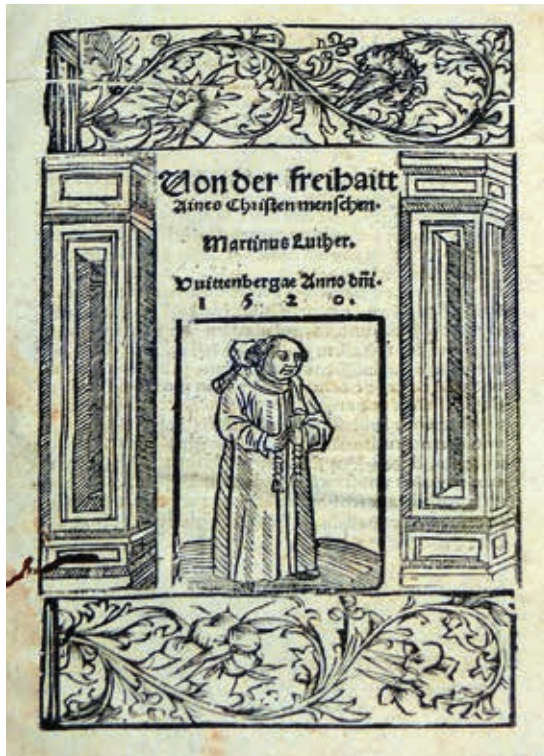 Von der freihaitt
Aines Christen menschen.
Martinus Luther.
Vuittenbergae Anno dñi.
1 5 2 0.